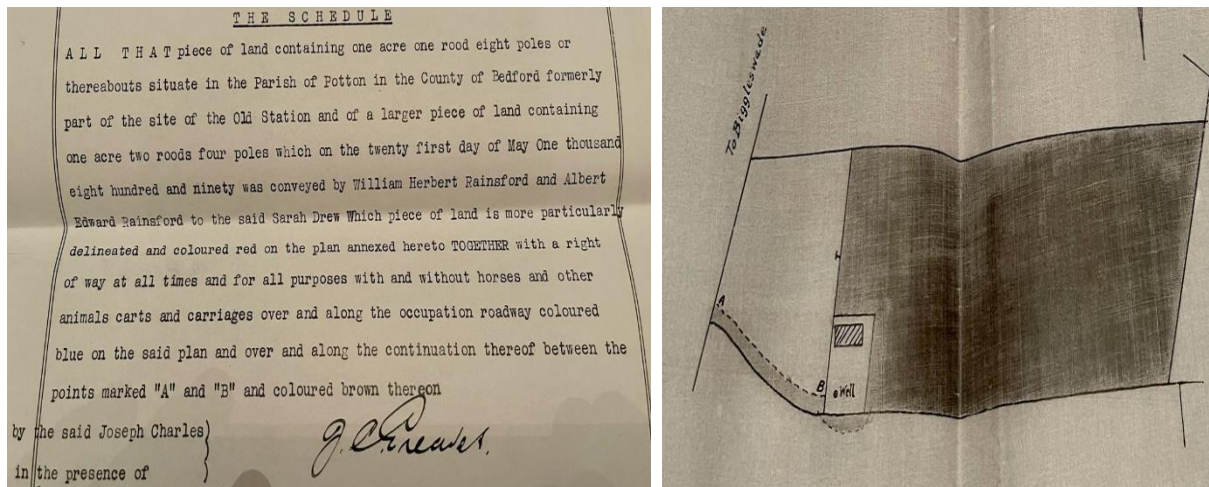 THE SCHEDULE
ALL THAT piece of land containing one acre one rood eight poles or
thereabouts situate in the Parish of Potton in the County of Bedford formerly
part of the site of the Old Station and of a larger piece of land containing
one acre two roods four poles which on the twenty first day of May One thousand
eight hundred and ninety was conveyed by William Herbert Rainsford and Albert
Edward Rainsford to the said Sarah Drew Which piece of land is more particularly
delineated and coloured red on the plan annexed hereto TOGETHER with a right
of way at all times and for all purposes with and without horses and other
animals carts and carriages over and along the occupation roadway coloured
blue on the said plan and over and along the continuation thereof between the
points marked "A" and "B" and coloured brown thereon
by the said Joseph Charles
in the presence of
J.C.
To Biggleswade
A
B
Well